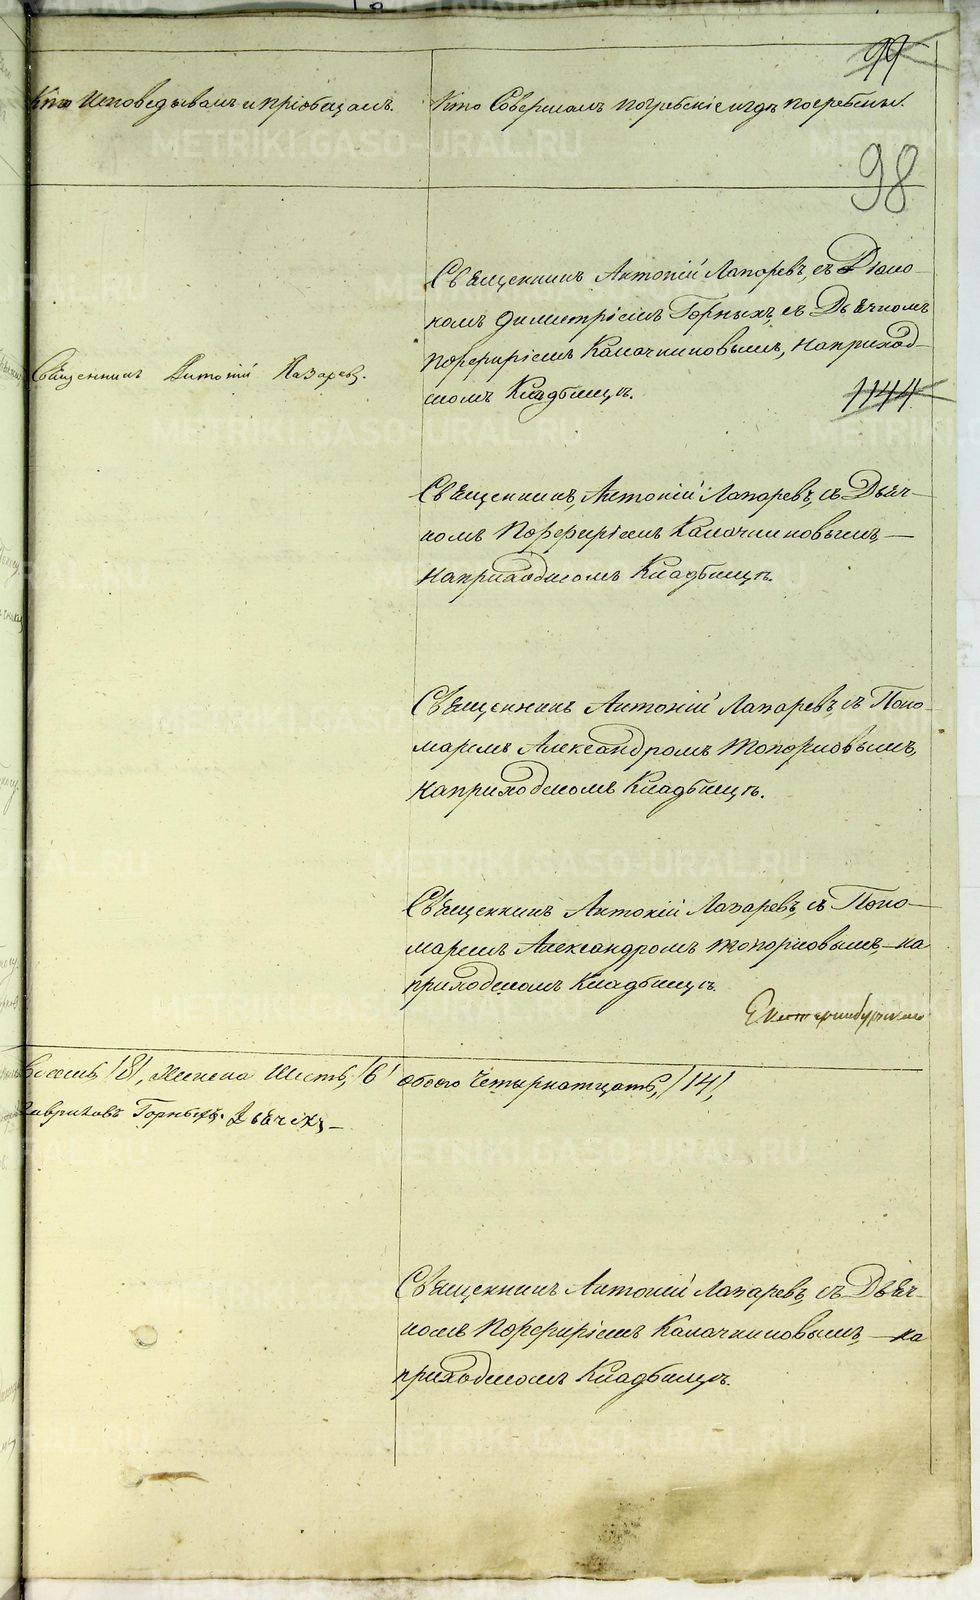 99
Кто Исповедывалъ и пріобщалъ.
Кто Совершалъ погребеніе и гдѣ погребены.
98
Священникъ Антоній Лазаревъ, съ Діако-
номъ Димитріемъ Горныхъ, съ Дьячкомъ
Порфиріемъ Калачниковымъ, на приход-
скомъ Кладбищѣ.
Священникъ Антоній Лазаревъ.
1144
Священникъ, Антоній Лазаревъ, съ Дьяч-
комъ Порфиріемъ Калачниковымъ, —
на приходскомъ Кладбищѣ.
Священникъ Антоній Лазаревъ, съ Поно-
маремъ Александромъ Топорковымъ,
на приходскомъ Кладбищѣ.
Священникъ Антоній Лазаревъ, съ Поно-
маремъ Александромъ Топорковымъ, на
приходскомъ Кладбищѣ.
Екатеринбургскаго
Восемь /8/, Женска Шесть, /6/ обоего Четырнатцать, /14/,
Горныхъ. Дьячекъ —
Священникъ Антоній Лазаревъ, съ Дьяч-
комъ Порфиріемъ Калачниковымъ, — на
приходскомъ Кладбищѣ.
METRIKI.GASO-URAL.RU